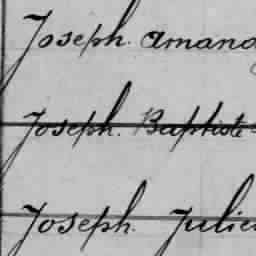 Joseph. Amand
Joseph. Baptiste
Joseph. Julie